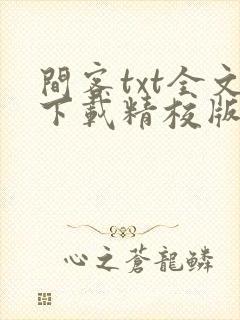 間客txt全文
下載精校版
心之蒼龍鱗